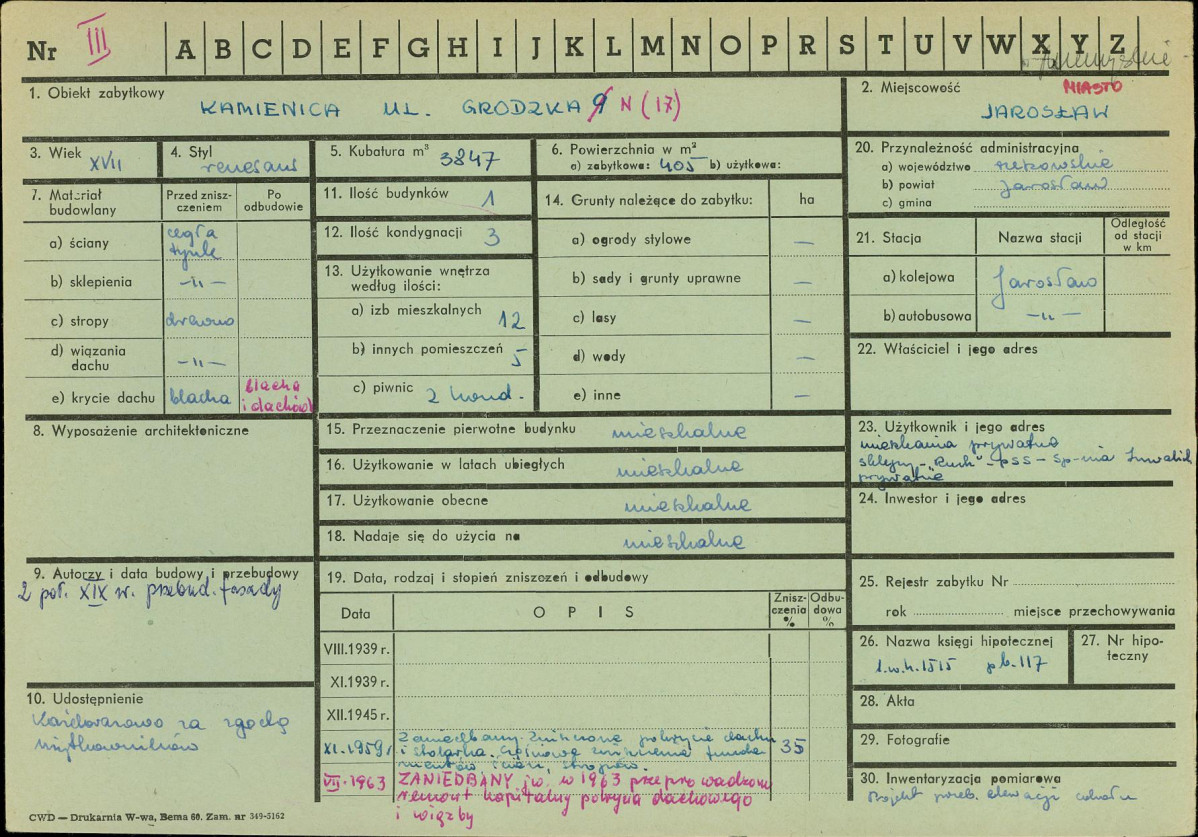 Nr III A B C D E F G H I J K L M N O P R S T U V W X Y Z
1. Obiekt zabytkowy
KAMIENICA UL. GRODZKA 9 N (17)
2. Miejscowość
MIASTO
JAROSŁAW
3. Wiek XVII
4. Styl
renesans
5. Kubatura m³ 3847
6. Powierzchnia w m²
a) zabytkowa: 405 b) użytkowa:
20. Przynależność administracyjna
a) województwo rzeszowskie
b) powiat Jarosław
c) gmina
7. Materiał budowlany
Przed znisz-
czeniem
Po
odbudowie
a) ściany cegła
tynk
b) sklepienia —"—
c) stropy drewno
d) wiązania
dachu —"—
e) krycie dachu blacha blacha
i dachów
11. Ilość budynków 1
12. Ilość kondygnacji 3
13. Użytkowanie wnętrza
według ilości:
a) izb mieszkalnych 12
b) innych pomieszczeń 5
c) piwnic 2 kond.
14. Grunty należące do zabytku: ha
a) ogrody stylowe —
b) sady i grunty uprawne —
c) lasy —
d) wody —
e) inne —
21. Stacja Nazwa stacji
Odległość
od stacji
w km
a) kolejowa Jarosław
b) autobusowa —"—
22. Właściciel i jego adres
8. Wyposażenie architektoniczne
15. Przeznaczenie pierwotne budynku mieszkalne
16. Użytkowanie w latach ubiegłych mieszkalne
17. Użytkowanie obecne mieszkalne
18. Nadaje się do użycia na mieszkalne
23. Użytkownik i jego adres
mieszkania prywatne
sklepy - "Ruch" - PSS - Sp-nia Inwalid
prywatne
24. Inwestor i jego adres
9. Autorzy i data budowy i przebudowy
2 poł. XIX w. przebud. fasady
19. Data, rodzaj i stopień zniszczeń i odbudowy
Data OPIS
Znisz-
czenia
%
Odbu-
dowa
%
VIII.1939 r.
XI.1939 r.
XII.1945 r.
XI.1959 r. Zaniedbany. Zniszczone pokrycie dachu
i stolarka. Częściowe zniszczenia funda-
mentów ścian, stropów. 35
VII.1963 ZANIEDBANY jw. w 1963 przeprowadzono
remont kapitalny pokrycia dachowego
i więźby
25. Rejestr zabytku Nr
rok miejsce przechowywania
26. Nazwa księgi hipotecznej
l.w.h. 1515 pb. 117
27. Nr hipo-
teczny
10. Udostępnienie
Każdorazowo za zgodą
użytkowników
28. Akta
29. Fotografie
30. Inwentaryzacja pomiarowa
Projekt przeb. elewacji
CWD — Drukarnia W-wa, Bema 60. Zam. nr 349-5162